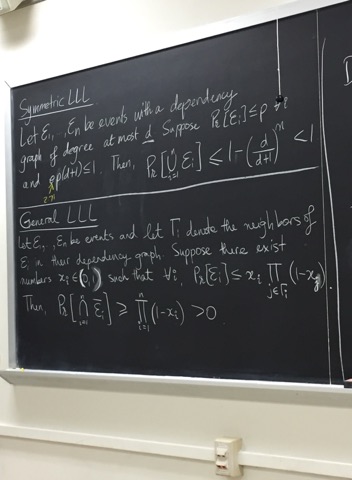 Symmetric LLL
Let Ɛ₁, .., Ɛn be events with a dependency
graph of degree at most d. Suppose Pr[Ɛi] ≤ p
and ep(d+1) ≤ 1. Then, Pr[⋃ᵢ₌₁ⁿ Ɛi] ≤ 1-(d/(d+1))ⁿ < 1
General LLL
Let Ɛ₁, .., Ɛn be events and let Γi denote the neighbors of
Ɛi in their dependency graph. Suppose there exist
numbers xi ∈ (0,1) such that ∀i, Pr[Ɛi] ≤ xi ∏ j∈Γi (1-xj).
Then, Pr[⋂ᵢ₌₁ⁿ Ɛ̄i] ≥ ∏ᵢ₌₁ⁿ (1-xi) > 0